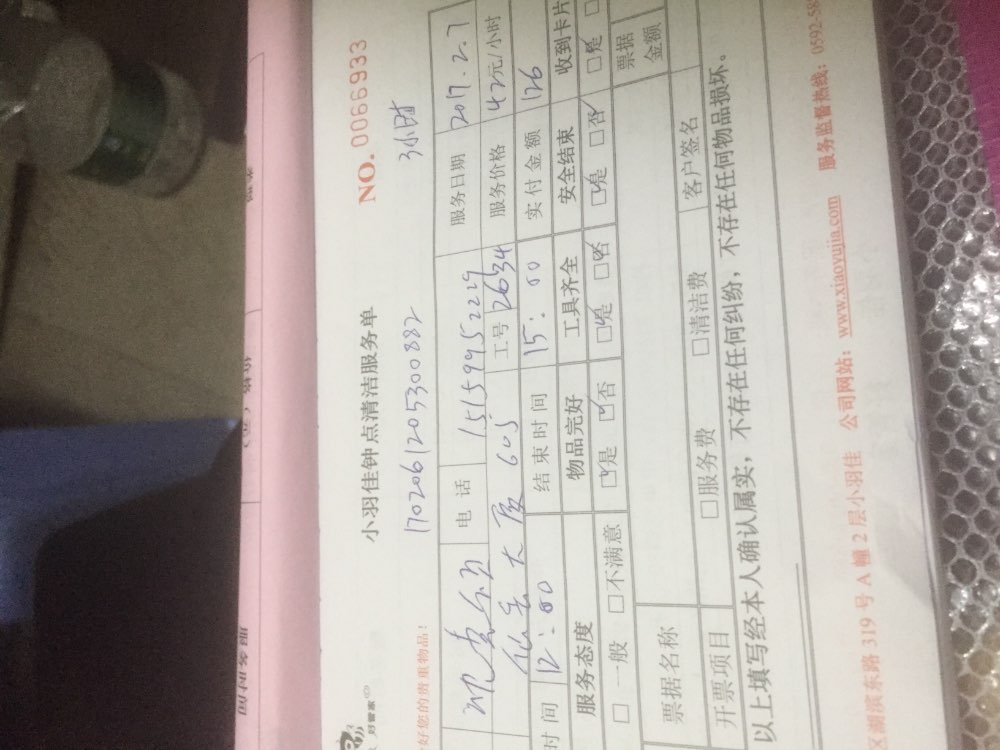 小羽佳钟点清洁服务单
NO. 0066933
好管家
好您的贵重物品!
1702061205300882
3小时
电 话 15159952229 服务日期 2017.2.7
大厦 605 工号 2634 服务价格 42元/小时
时 间 12:00 结 束 时 间 15:00 实 付 金 额 126
服务态度 物品完好 工具齐全 安全结束 收到卡片
□ 一般 □不满意 □是 □否 □是 □否 □是 □否 □是
票据名称 票据金额
开票项目 □服务费 □清洁费 客户签名
以上填写经本人确认属实，不存在任何纠纷，不存在任何物品损坏。
区湖滨东路 319 号 A 幢 2 层小羽佳 公司网站：www.xiaoyujia.com 服务监督热线：0592-58